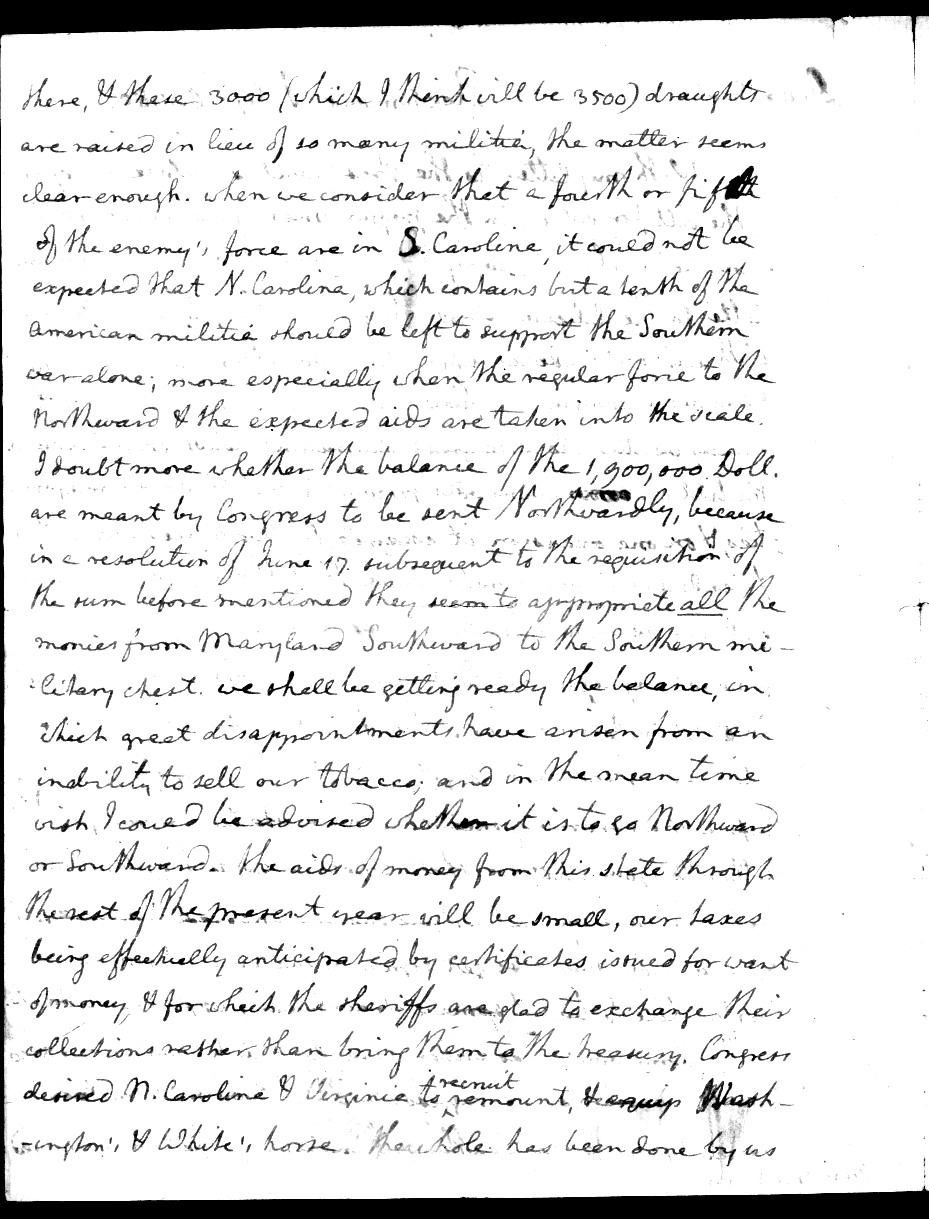 there, & these 3000 (which I think will be 3500) draughts
are raised in lieu of so many militia, the matter seems
clear enough. when we consider that a fourth or fifth
of the enemy's force are in S. Carolina, it could not be
expected that N. Carolina, which contains but a tenth of the
American militia should be left to support the Southern
war alone; more especially when the regular force to the
Northward & the expected aids are taken into the scale.
I doubt more whether the balance of the 1,900,000 Doll.
are meant by Congress to be sent Northwardly, because
in a resolution of June 17. subsequent to the requisition of
the sum before mentioned they seem to appropriate all the
monies from Maryland Southward to the Southern mi-
litary chest. we shall be getting ready the balance, in
which great disappointments have arisen from an
inability to sell our tobacco; and in the mean time
wish I could be advised whether it is to go Northward
or Southward. the aids of money from this state through
the rest of the present year will be small, our taxes
being effectually anticipated by certificates issued for want
of money, & for which the sheriffs are glad to exchange their
collections rather than bring them to the treasury. Congress
desired N. Carolina & Virginia to recruit remount, & equip Wash-
ington's & White's horse. the whole has been done by us